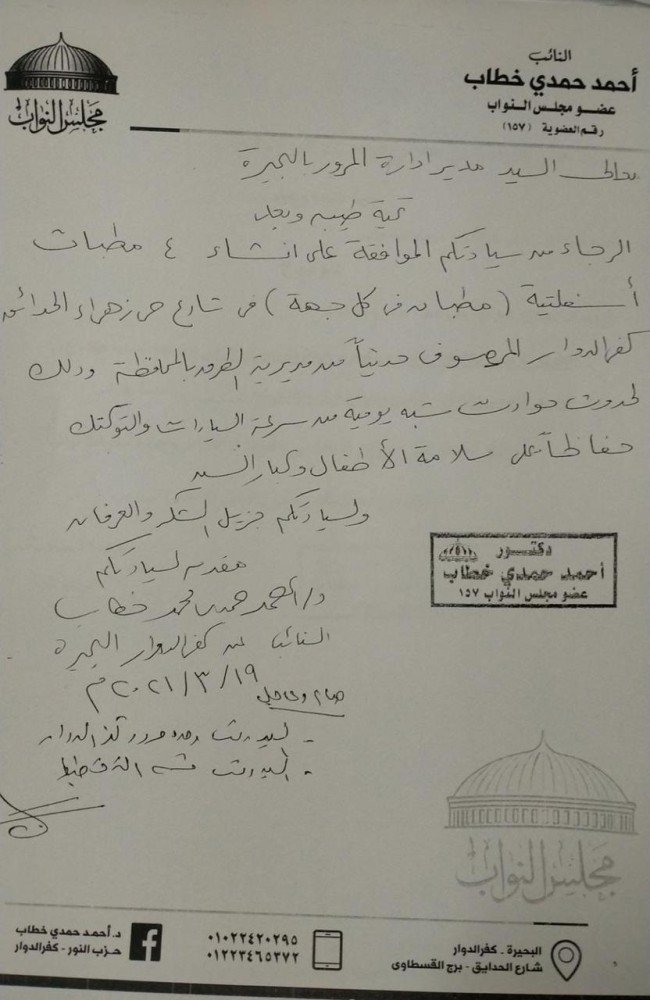 النائب
أحمد حمدي خطاب
عضو مجلس النواب
رقم العضوية (١٥٧)
مجلس النواب
معالى السيد مدير ادارة المرور بالبحيرة
تحية طيبه وبعد
الرجاء من سيادتكم الموافقة على انشاء ٤ مطبات
أسفلتية (مطبان فى كل جهة) فى شارع حى زهراء الحدائق
كفر الدوار المرصوف حديثاً من مديرية الطرق بالمحافظة وذلك
لحدوث حوادث شبه يومية من سرعة السيارات والتوكتك
حفاظاً على سلامة الأطفال وكبار السن
ولسيادتكم جزيل الشكر والعرفان
مقدمه لسيادتكم
د/ أحمد حمدى محمد خطاب
النائب عن كفر الدوار البحيرة
١٩/٣/٢٠٢١م
دكتور
أحمد حمدي خطاب
عضو مجلس النواب ١٥٧
هام وعاجل
- لسيد رئيس وحده مرور كفر الدوار
- السيد رئيس قسم
مجلس النواب
البحيرة - كفر الدوار
شارع الحدايق - برج القسطاوى
٠١٠٢٢٤٢٠٢٩٥
٠١٢٢٣٤٦٥٣٧٢
د.أحمد حمدي خطاب
حزب النور - كفر الدوار